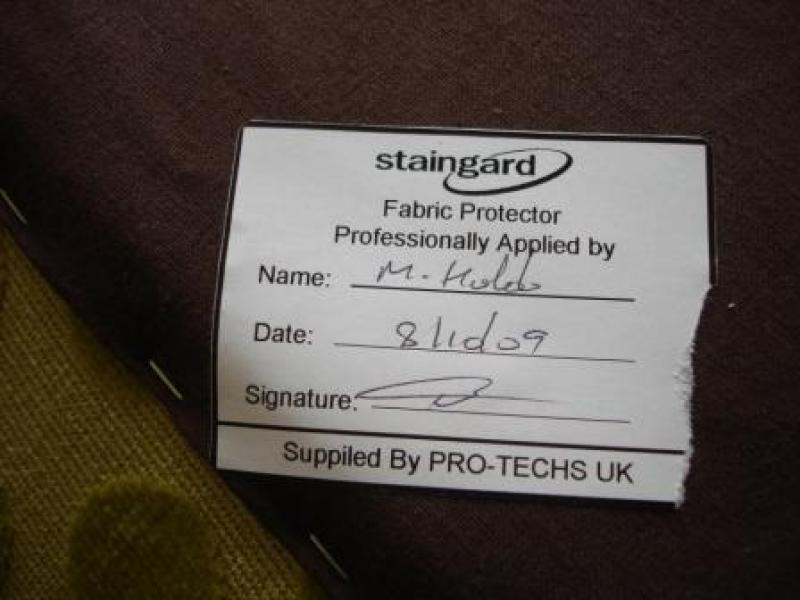 staingard
Fabric Protector
Professionally Applied by
Name: M.
Date: 8/10/09
Signature:
Suppiled By PRO-TECHS UK